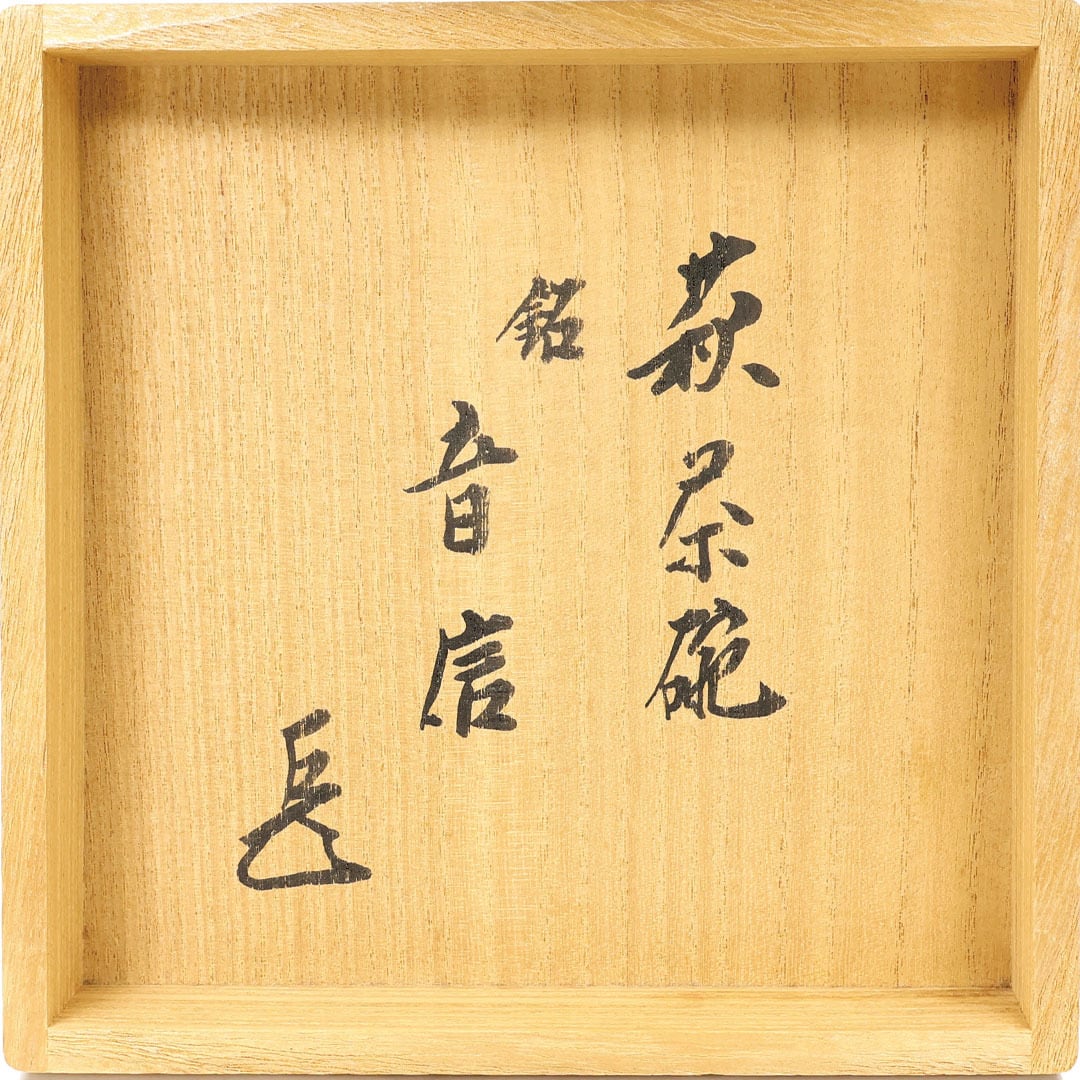 萩茶碗
銘
音信